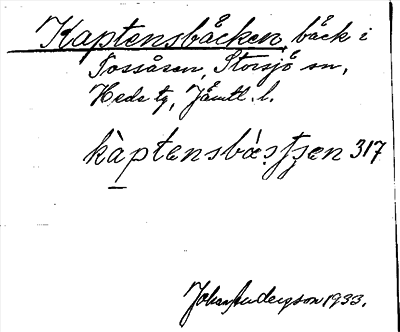 Kaptensbäcken, bäck i
Tossåsen, Storsjö sn,
Heds tg, Jämtl. l.
kàptensbæstsen 317
Johan Anderson 1933.